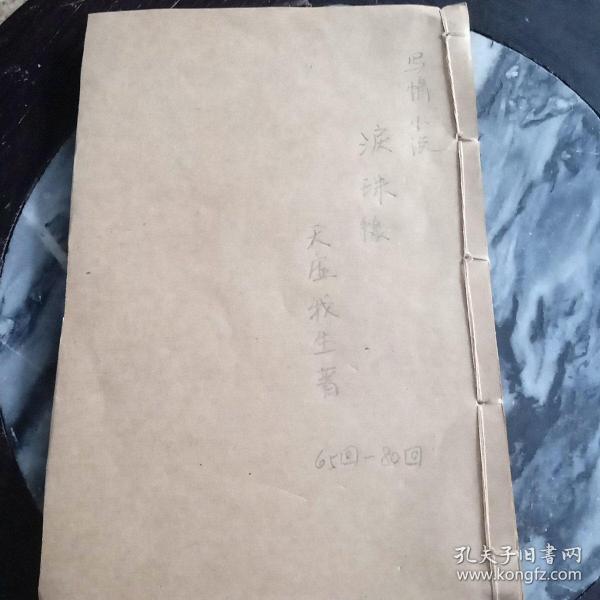 写情小说
泪珠缘
天虚我生著
65回-80回
孔夫子旧书网
www.kongfz.com